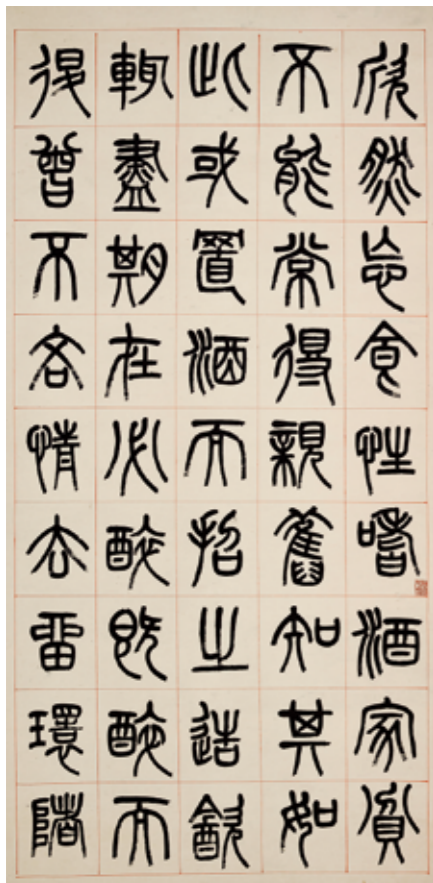 欣然忘食性嗜酒家貧
不能常得親舊知其如
此或置酒而招之造飲
輒盡期在必醉既醉而
退曾不吝情去留環堵